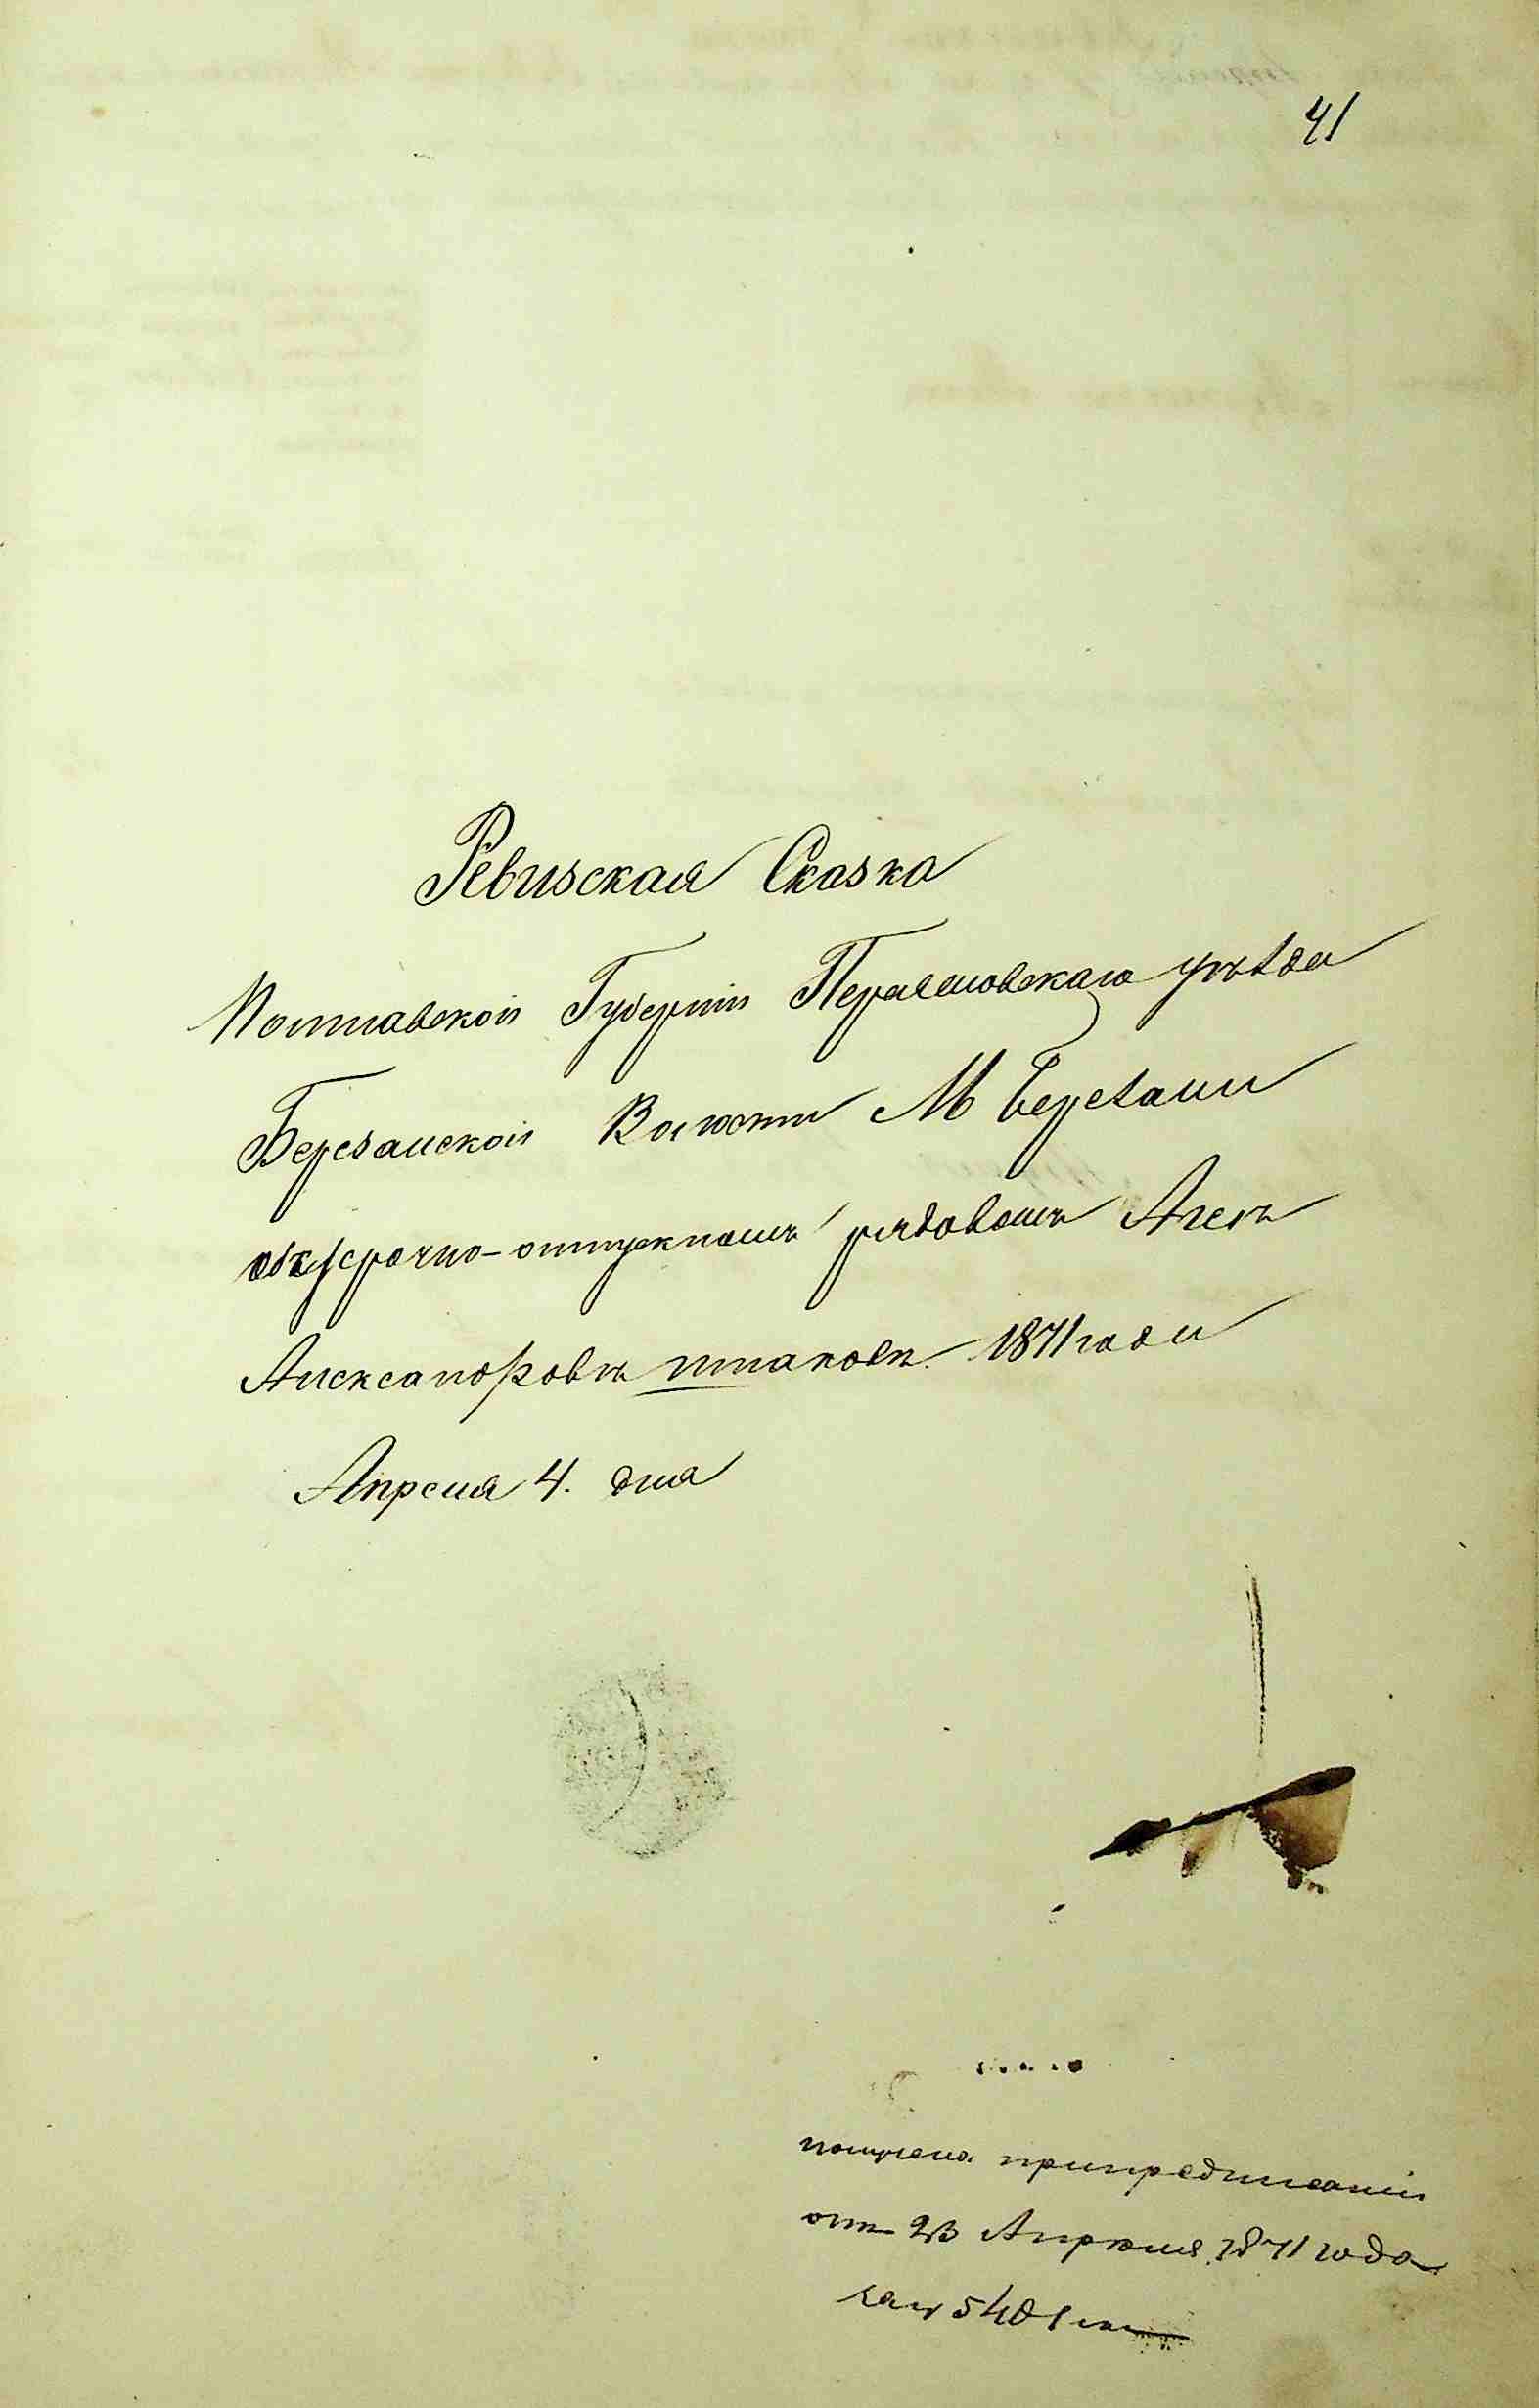 41
Ревизская Сказка
Полтавской Губерніи Переяславскаго уѣзда
Березанской Волости М Березани
безсрочно-отпускномъ рядовомъ
Александровъ 1871 года
Апреля 4. дня
получена припредписаніи
отъ 23 Апреля 1871 года